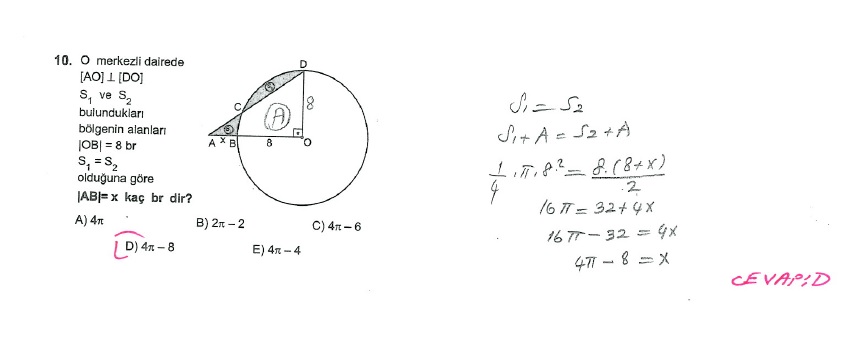 10. O merkezli dairede
[AO] ⊥ [DO]
S₁ ve S₂
bulundukları
bölgenin alanları
|OB| = 8 br
S₁ = S₂
olduğuna göre
|AB|= x kaç br dir?
D
C
8
A
A x B 8 O
A) 4π B) 2π – 2 C) 4π – 6
D) 4π – 8 E) 4π – 4
S₁ = S₂
S₁ + A = S₂ + A
1/4 . π . 8² = 8.(8+x)/2
16π = 32 + 4x
16π – 32 = 4x
4π – 8 = x
CEVAP:D